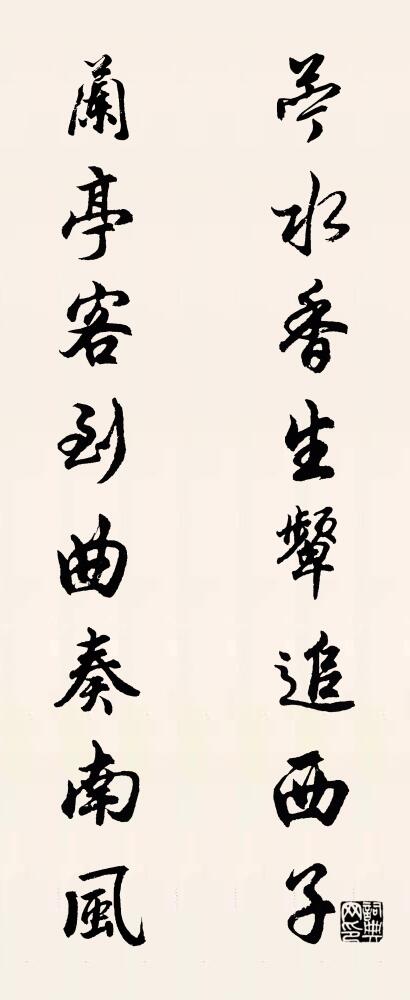 苧水香生颦追西子
蘭亭客到曲奏南風
詞典网印